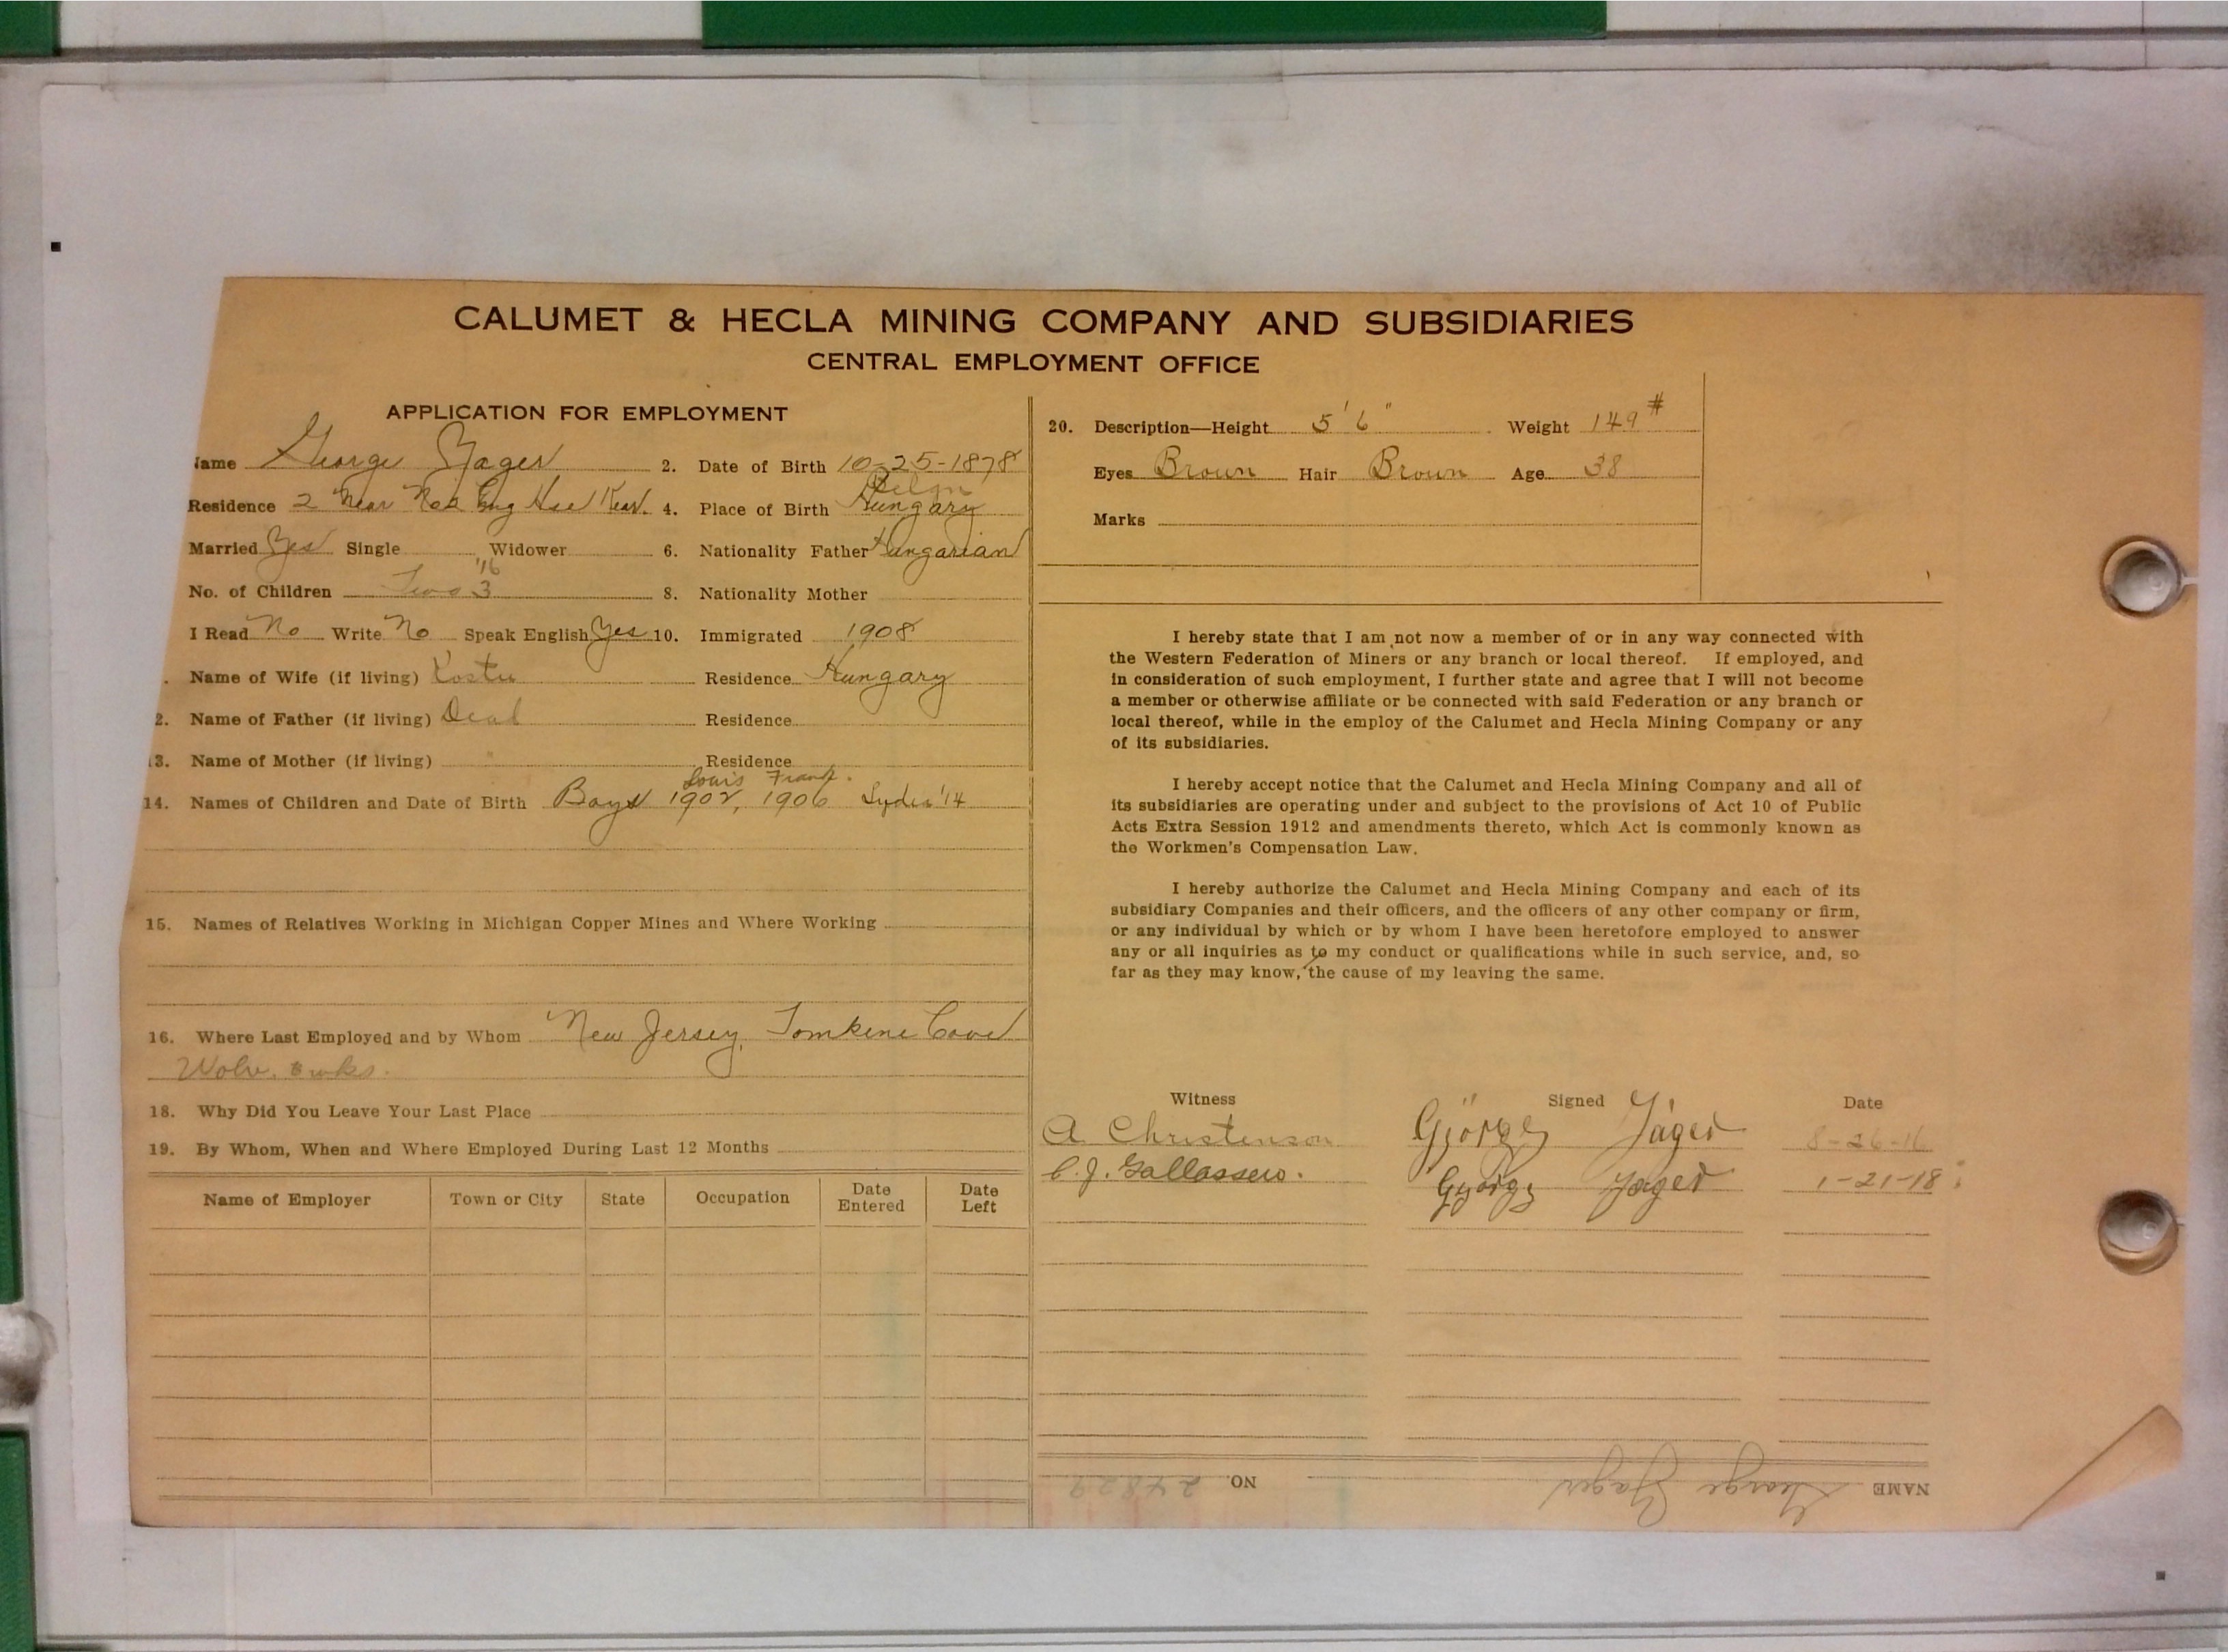 CALUMET & HECLA MINING COMPANY AND SUBSIDIARIES
CENTRAL EMPLOYMENT OFFICE
APPLICATION FOR EMPLOYMENT
Name George Yager 2. Date of Birth 10-25-1878
Residence 2 Near No 2 Eng Hse Kear. 4. Place of Birth Hungary
Married Yes Single Widower 6. Nationality Father Hungarian
No. of Children Two 3 '16 8. Nationality Mother
I Read No Write No Speak English Yes 10. Immigrated 1908
. Name of Wife (if living) Residence Hungary
2. Name of Father (if living) Dead Residence
13. Name of Mother (if living) Residence
Louis Frank.
14. Names of Children and Date of Birth Boys 1902, 1906 Lydia '14
15. Names of Relatives Working in Michigan Copper Mines and Where Working
16. Where Last Employed and by Whom New Jersey, Tomkins Cove
Wolv.
18. Why Did You Leave Your Last Place
19. By Whom, When and Where Employed During Last 12 Months
Name of Employer Town or City State Occupation Date Entered Date Left
20. Description—Height 5' 6" Weight 149#
Eyes Brown Hair Brown Age 38
Marks
I hereby state that I am not now a member of or in any way connected with
the Western Federation of Miners or any branch or local thereof. If employed, and
in consideration of such employment, I further state and agree that I will not become
a member or otherwise affiliate or be connected with said Federation or any branch or
local thereof, while in the employ of the Calumet and Hecla Mining Company or any
of its subsidiaries.
I hereby accept notice that the Calumet and Hecla Mining Company and all of
its subsidiaries are operating under and subject to the provisions of Act 10 of Public
Acts Extra Session 1912 and amendments thereto, which Act is commonly known as
the Workmen's Compensation Law.
I hereby authorize the Calumet and Hecla Mining Company and each of its
subsidiary Companies and their officers, and the officers of any other company or firm,
or any individual by which or by whom I have been heretofore employed to answer
any or all inquiries as to my conduct or qualifications while in such service, and, so
far as they may know, the cause of my leaving the same.
Witness Signed Date
A Christenson György Jáger 8-26-16
C. J. Gallassero. György Jager 1-21-18
NAME George Yager NO. 24829